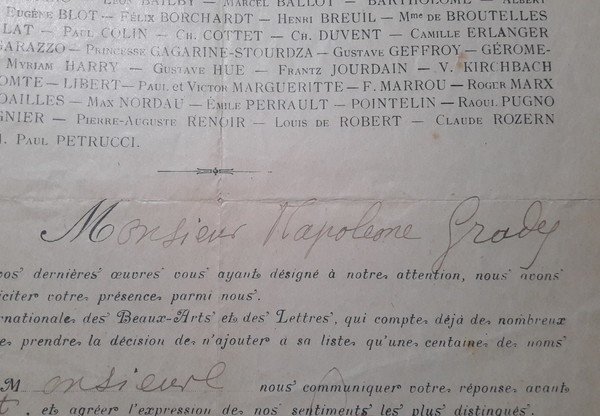 LÉON BAILBY — MARCEL BALLOT — BARTHOLOMÉ — ALBERT
EUGÈNE BLOT — FÉLIX BORCHARDT — HENRI BREUIL — Mme DE BROUTELLES
LAT — PAUL COLIN — CH. COTTET — CH. DUVENT — CAMILLE ERLANGER
GARAZZO — PRINCESSE GAGARINE-STOURDZA — GUSTAVE GEFFROY — GÉROME-
MYRIAM HARRY — GUSTAVE HUE — FRANTZ JOURDAIN — V. KIRCHBACH
OMTE — LIBERT — PAUL ET VICTOR MARGUERITTE — F. MARROU — ROGER MARX
OAILLES — MAX NORDAU — ÉMILE PERRAULT — POINTELIN — RAOUL PUGNO
GNIER — PIERRE-AUGUSTE RENOIR — LOUIS DE ROBERT — CLAUDE ROZERN
M. PAUL PETRUCCI.
Monsieur Napoleone Grady
vos dernières œuvres vous ayant désigné à notre attention, nous avons
iciter votre présence parmi nous.
ernationale des Beaux-Arts et des Lettres, qui compte déjà de nombreux
e prendre la décision de n'ajouter a sa liste qu'une centaine de noms
Monsieur nous communiquer votre réponse avant
et agréer l'expression de nos sentiments les plus distingués.